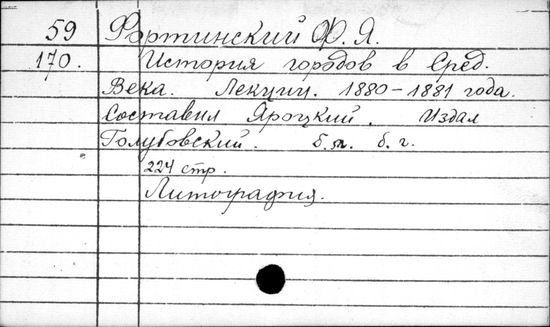 59 Фортинский Ф. Я.
170. История городов в Сред.
Века. Лекции. 1880-1881 года.
Составил Яроцкий. Издал
Голубовский. б.м. б. г.
224 стр.
Литография.